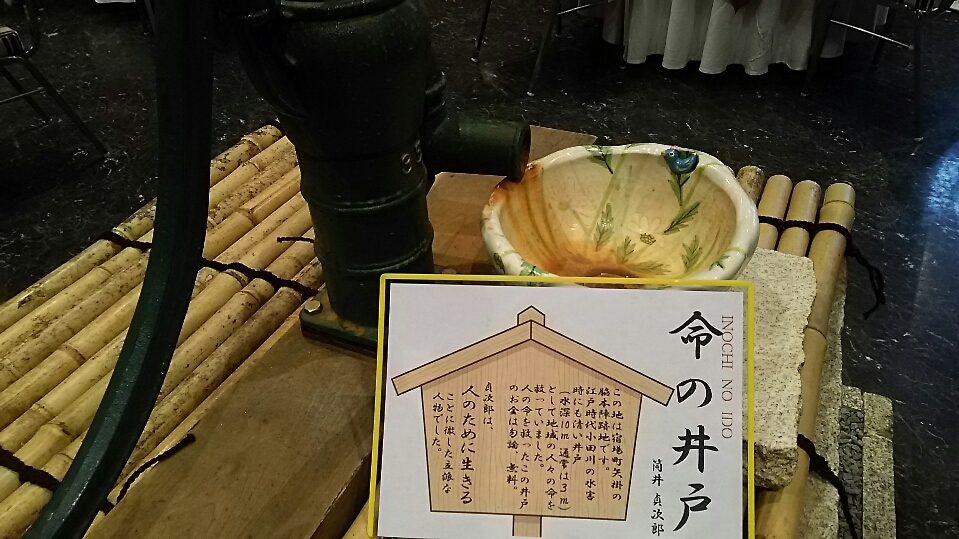 命の井戸
INOCHI NO IDO
筒井 貞次郎
この地は宿場町矢掛の
脇本陣跡地です。
江戸時代小田川の水害
時にも清い井戸
(水深10m 通常は3m)
として地域の人々の命を
救っていました。
人の命を救ったこの井戸
のお金は勿論、無料。
貞次郎は、
人のために生きる
ことに徹した立派な
人物でした。